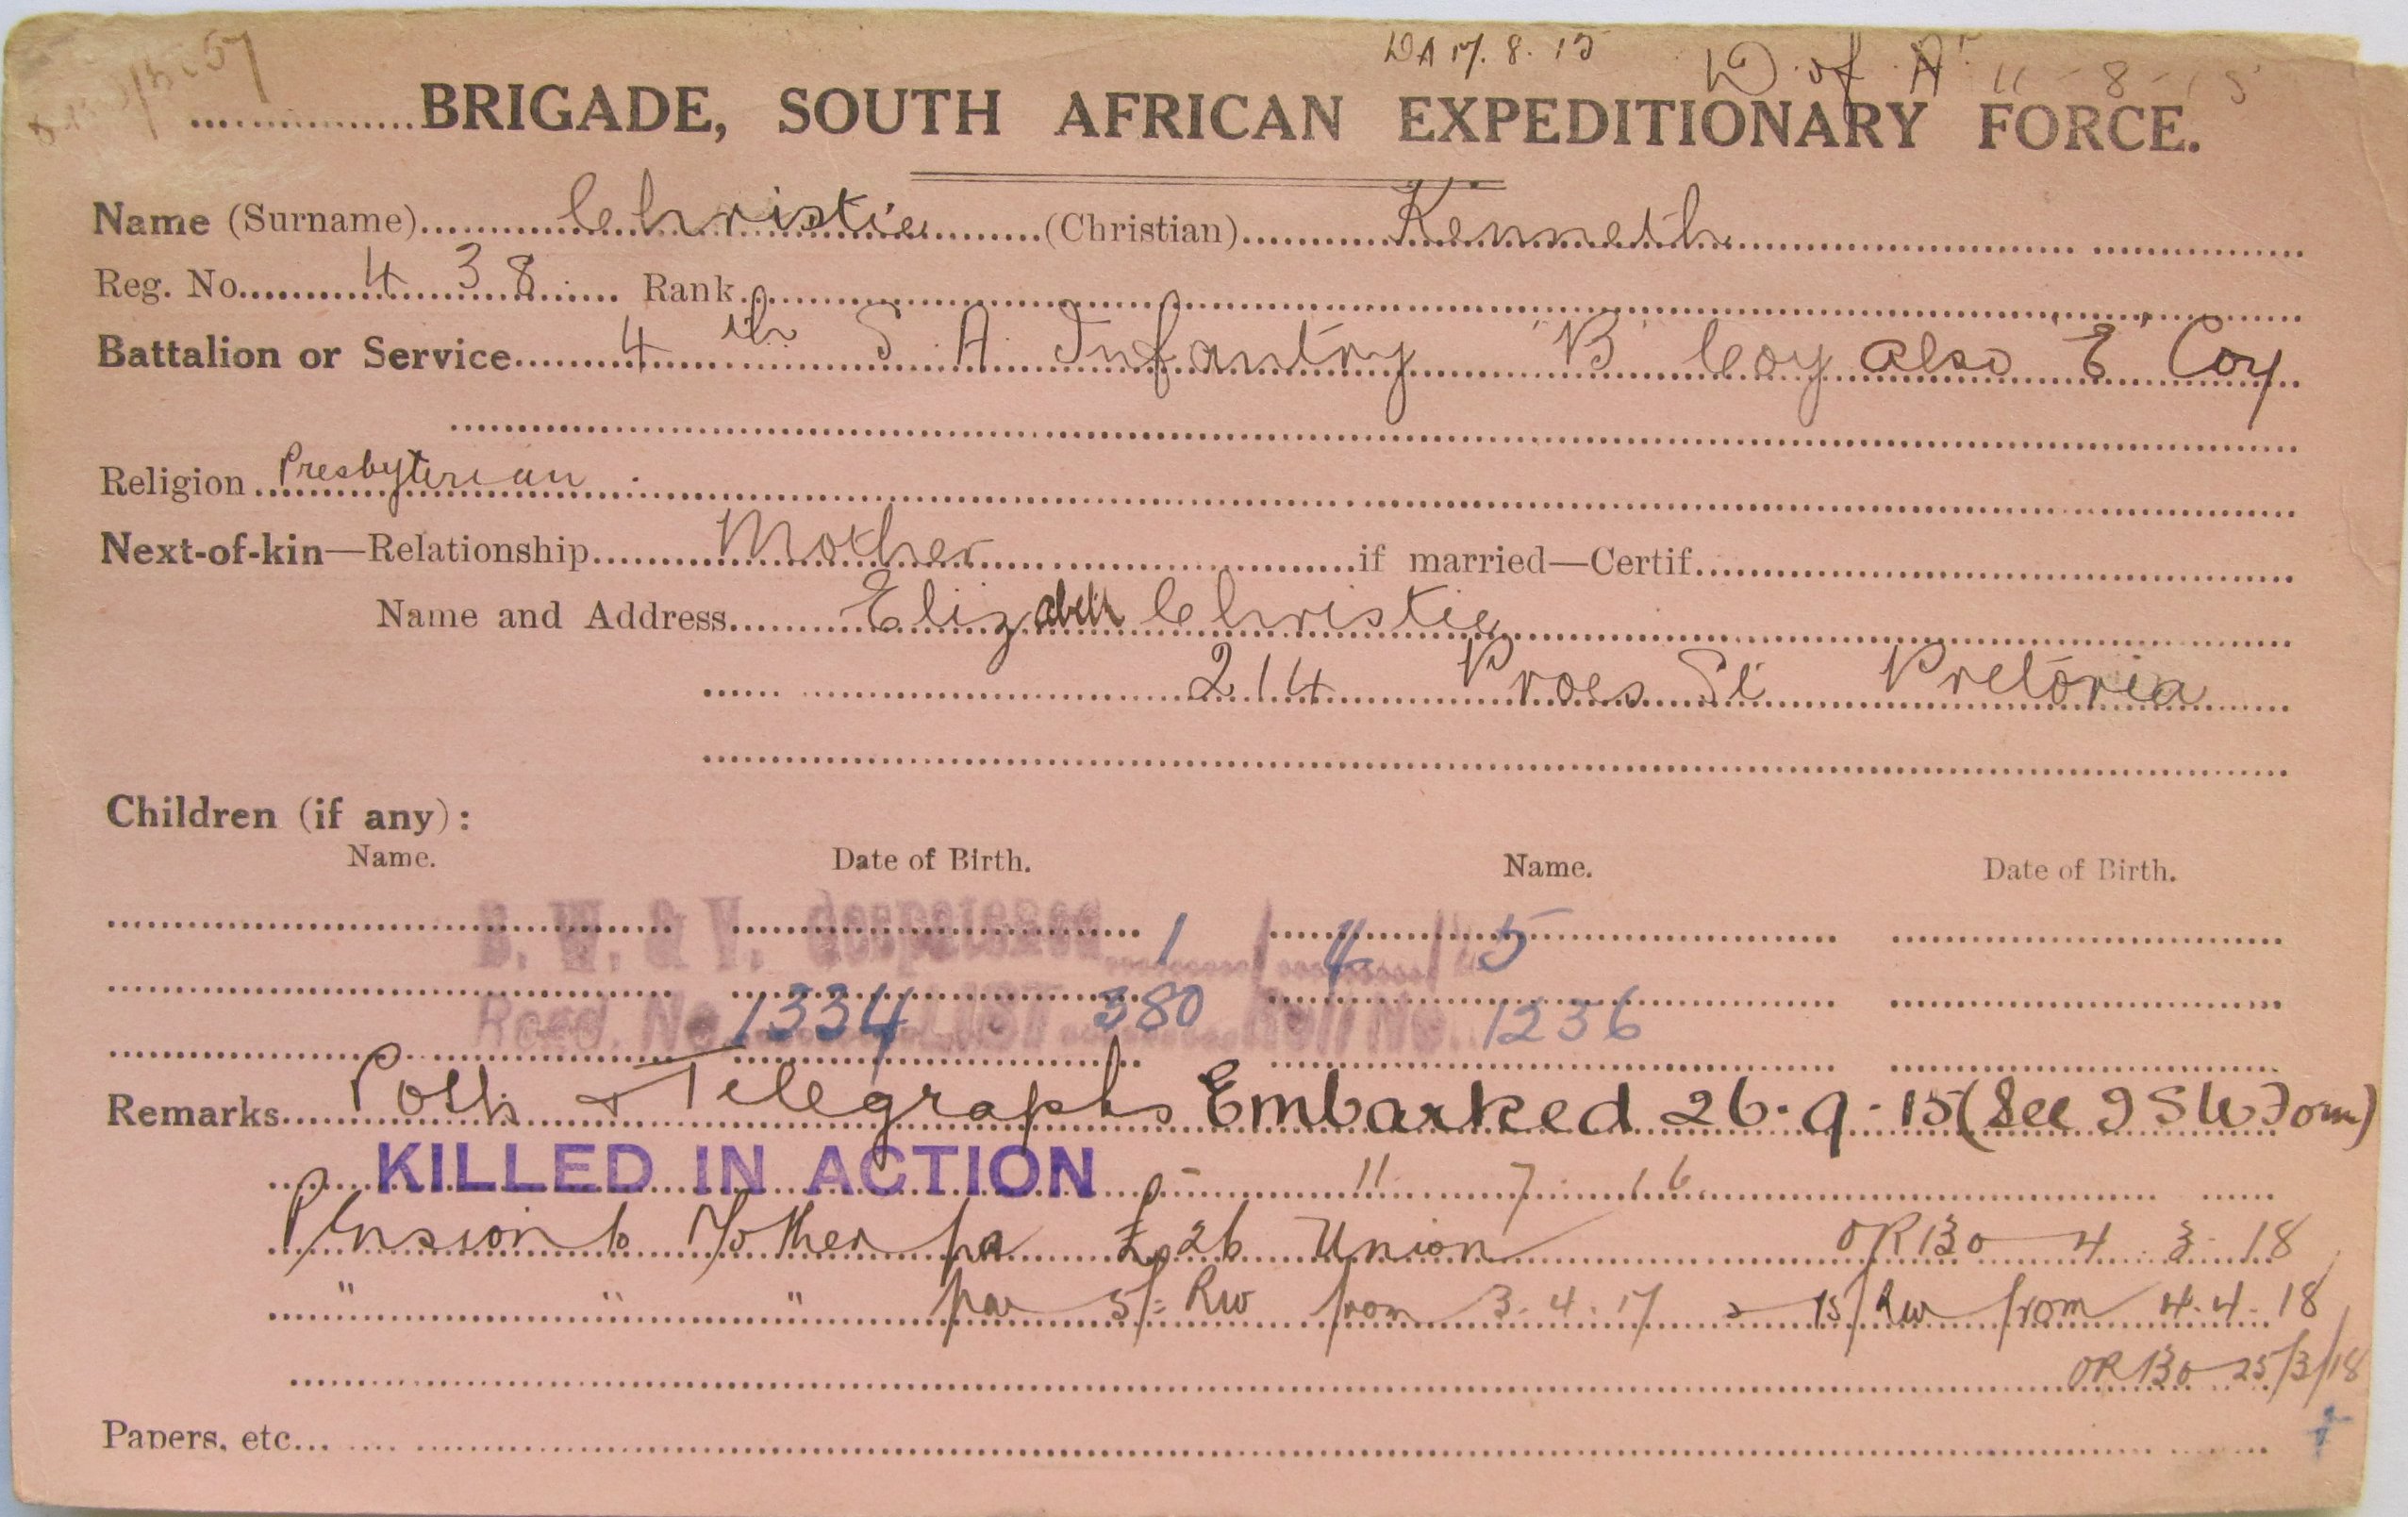 DA 17. 8. 15 D of A 11 - 8 - 15
BRIGADE, SOUTH AFRICAN EXPEDITIONARY FORCE.
Name (Surname) Christie (Christian) Kenneth
Reg. No. 438 Rank
Battalion or Service 4th S. A. Infantry "B" Coy also "E" Coy
Religion Presbyterian.
Next-of-kin—Relationship Mother if married—Certif.
Name and Address Elizabeth Christie
214 Proes St Pretoria
Children (if any):
Name. Date of Birth. Name. Date of Birth.
B. W. & V. despatched 1 / 4 / 5
Recd. No. 1334 LIST 380 Roll No. 1236
Remarks Posts & Telegraphs Embarked 26.9.15 (See Form)
KILLED IN ACTION - 11 7 16
Pension to Mother pa £26 Union OR130 4 3 18
" " " 5/= RW from 3.4.17 15/ RW from 4.4.18
OR130 25/3/18
Papers, etc.